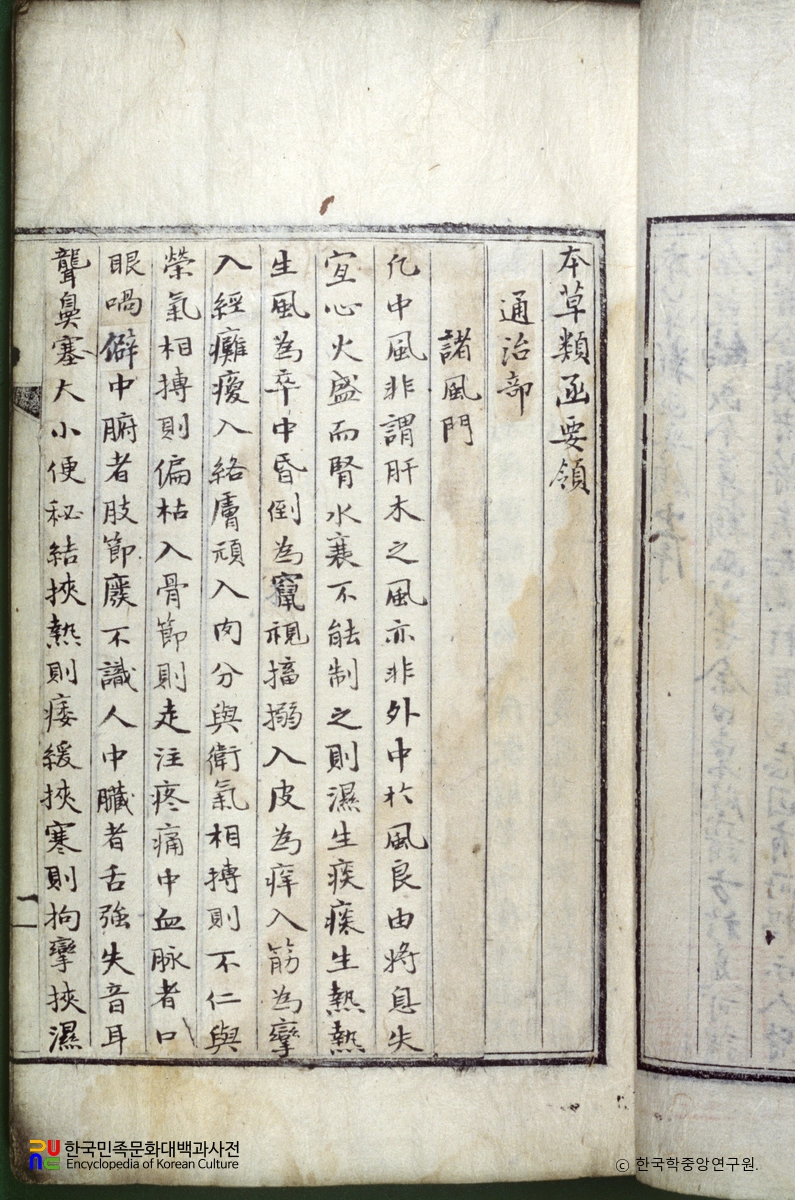 本草類函要領
通治部
諸風門
凡中風非謂肝木之風亦非外中於風良由將息失
宜心火盛而腎水衰不能制之則濕生痰痰生熱熱
生風為卒中昏倒為竄視搐搦入皮為痒入筋為攣
入經癱瘓入絡膚頑入肉分與衛氣相搏則不仁與
榮氣相搏則偏枯入骨節則走注疼痛中血脉者口
眼喎僻中腑者肢節廢不識人中臟者舌強失音耳
聾鼻塞大小便秘結挾熱則痿緩挾寒則拘攣挾濕
二
한국민족문화대백과사전
Encyclopedia of Korean Culture
© 한국학중앙연구원.